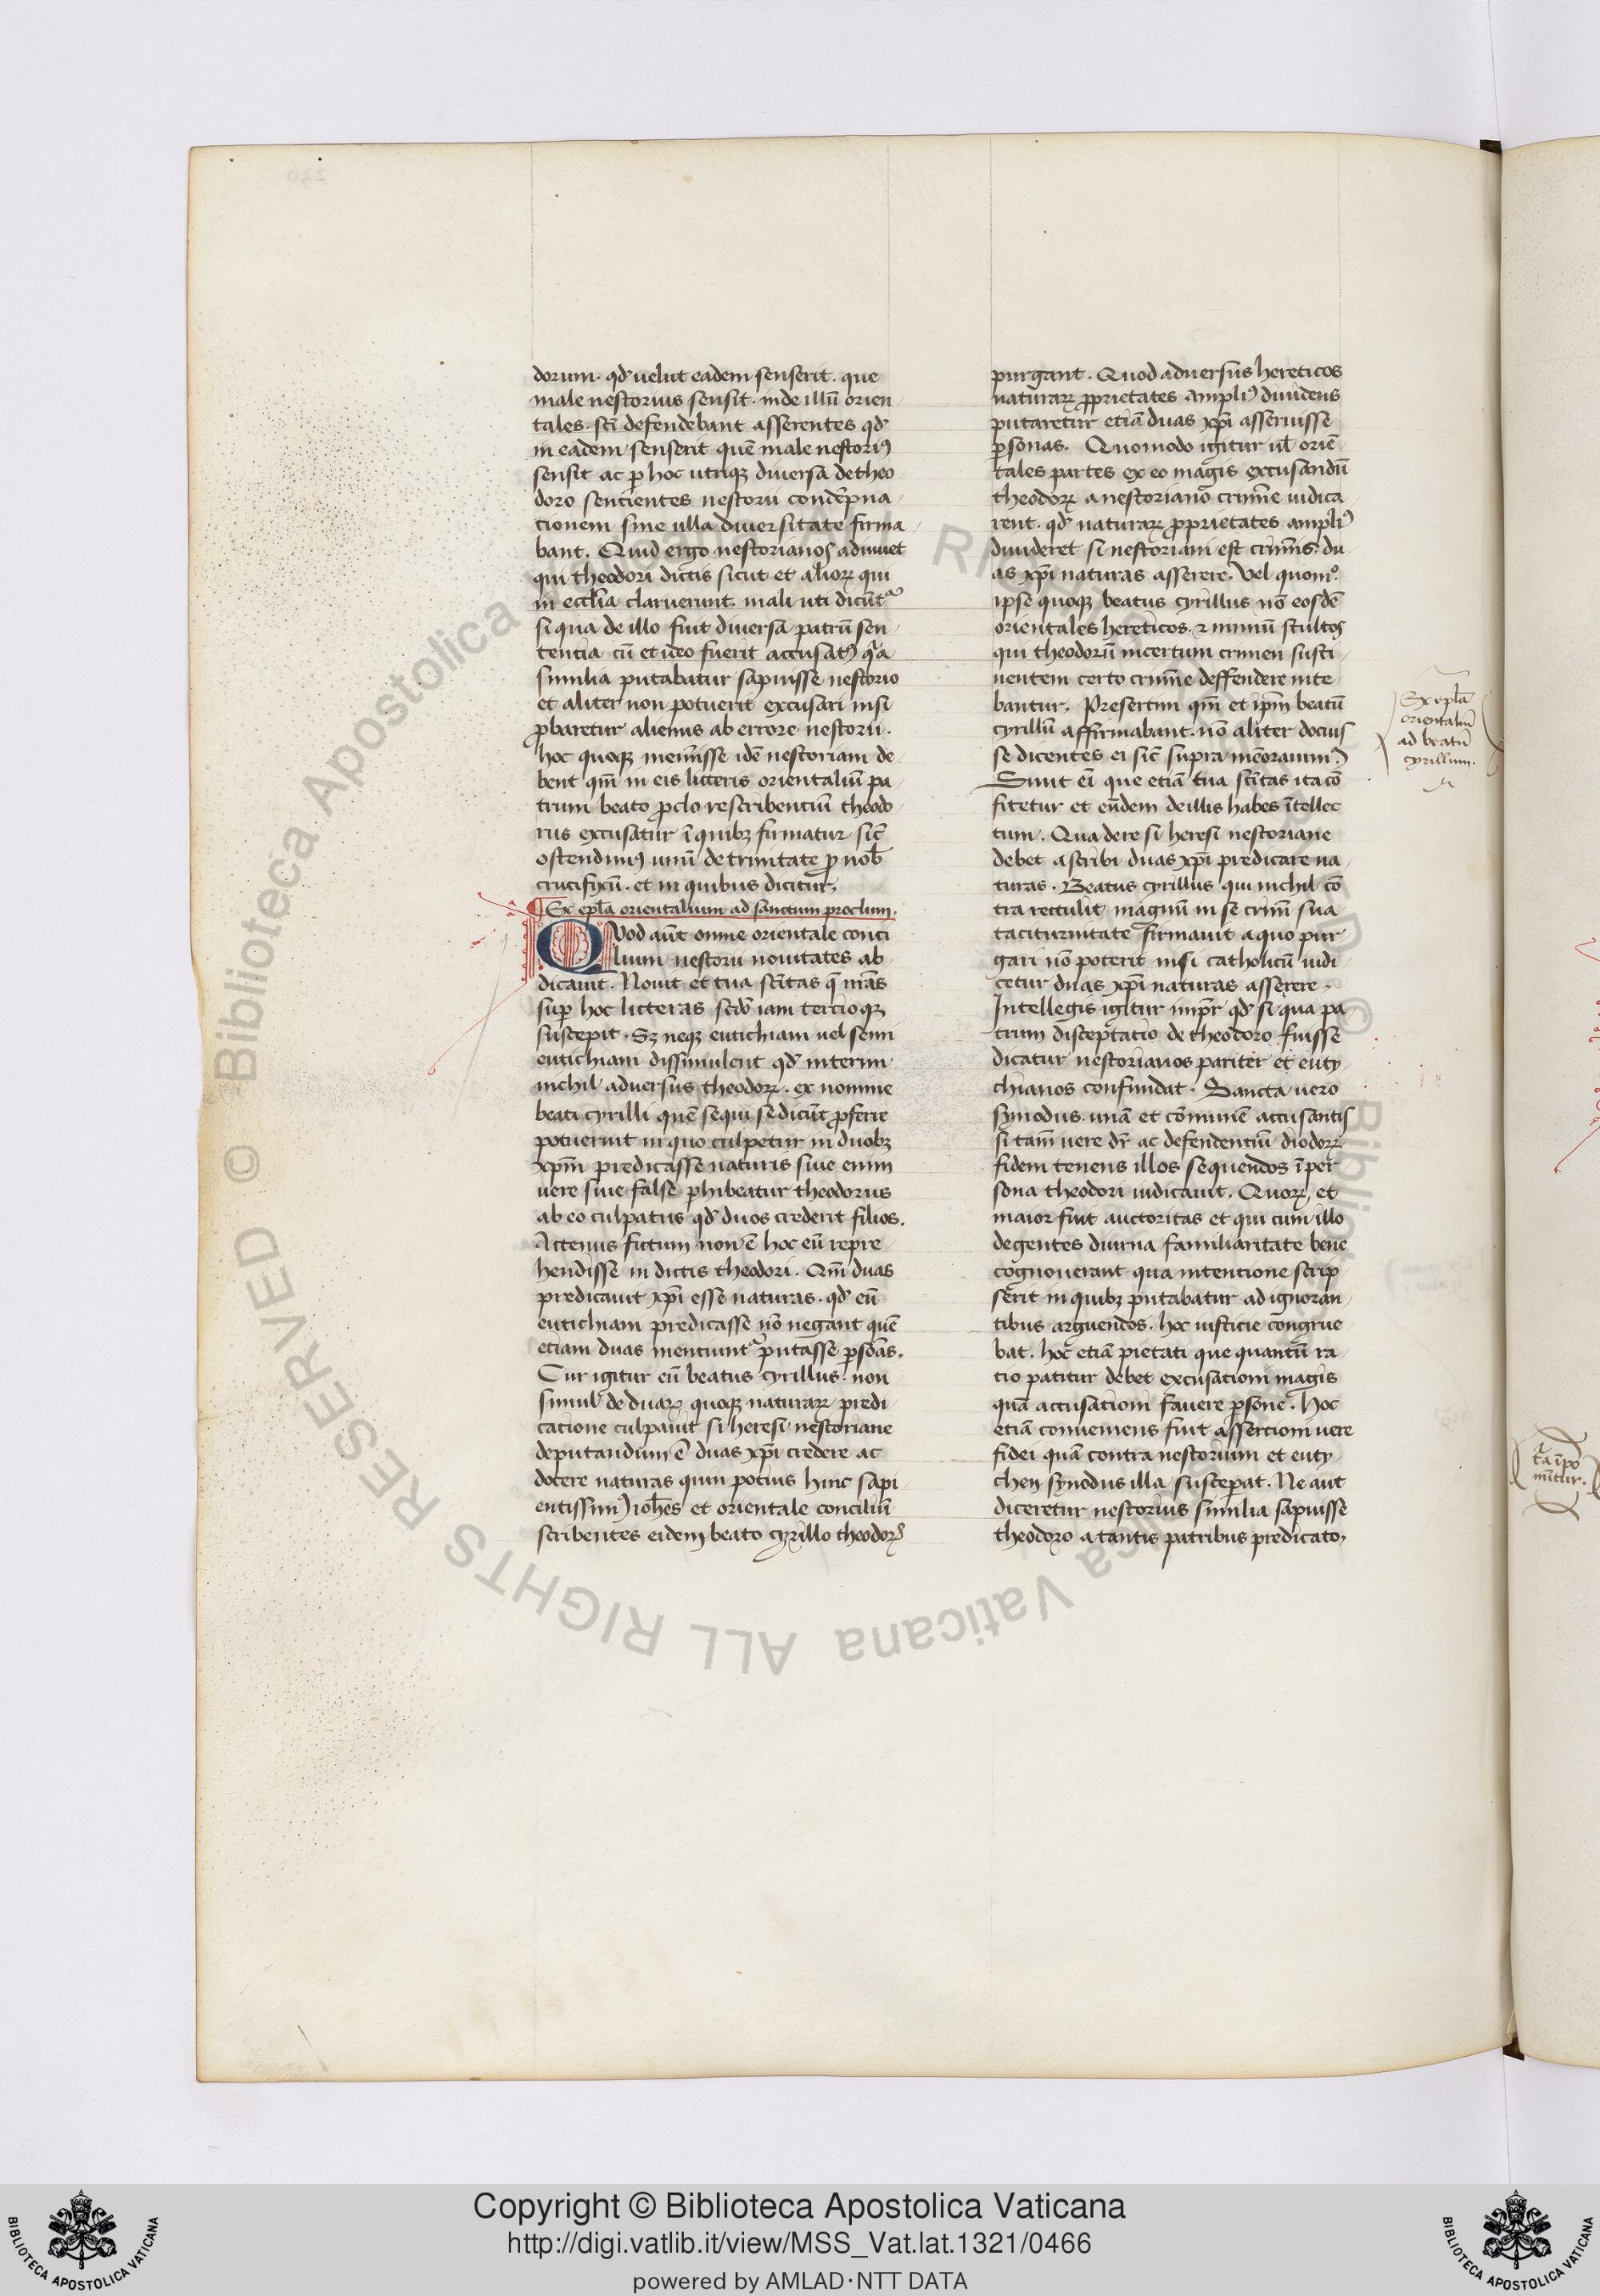 dorum. qd' uelut eadem senserit. que
male nestorius sensit. inde illū orien
tales. sci defendebant asserentes qd'
in eadem senserit quē male nestori⁹
sensit ac p hoc utrq; diuersa de theo
doro sentientes nestorii condēpna
tionem sine ulla diuersitate firma
bant. Quid ergo nestorianos adiuuet
qui theodori dictis sicut et alioꝝ qui
in eccl̄ia claruerunt. mali uti dicūt᷑
si qua de illo fuit diuersa patrū sen
tentia cū et ideo fuerit accusat⁹ qa
similia putabatur sapuisse nestorio
et aliter non potuerit excusari nisi
ꝓbaretur alienus ab errore nestorii.
hoc quoq; memīsse idē nestoriani de
bent qm̄ in eis litteris orientaliū pa
trum beato ꝓclo rescribentiū theodo
rus excusatur ī quibꝫ firmatur sic̄
ostendim⁹ unū de trinitate ꝓ nob̄
crucifixū. et in quibus dicitur.
Ex epl̄a orientalium ad sanctum proclum.
Quod aūt omne orientale conci
lium nestorii nouitates ab
dicauit. Nouit et tua sc̄itas q̄ nr̄as
suꝑ hoc litteras scd'o iam tercioq;
suscepit. Sꝫ neq; eutichiani uel semi
eutichiani dissimulent qd' interim
nichil aduersus theodoꝝ. ex nomine
beati cyrilli quē sequi se dicūt ꝓferre
potuerunt in quo culpetur in duobꝫ
xp̄m predicasse naturis siue enim
uere siue false ꝑhibeatur theodorus
ab eo culpatus qd' duos crederit filios.
Actenus fictum non ē hoc eū repre
hendisse in dictis theodori. Qm̄ duas
predicauit xp̄i esse naturas. qd' eū
eutichiani predicasse nō negant quē
etiam duas mentiunt᷑ putasse ꝑsōas.
Cur igitur eū beatus cyrillus non
simul de duaꝝ quoq; naturaꝝ predi
catione culpauit si heresi nestoriane
deputandum ē duas xp̄i credere ac
docere naturas quin potius hinc sapi
entissim⁹ ioh̄es et orientale conciliū
scribentes eidem beato cyrillo theodoꝝ
purgant. Quod aduersus hereticos
naturaꝝ ꝓprietates ampli⁹ diuidens
putaretur etiā duas xp̄i asseruisse
ꝑsonas. Quomodo igitur ul̄ oriē
tales partes ex eo magis excusandū
theodoꝝ a nestoriano crimīe iudica
rent. qd' naturaꝝ ꝓprietates ampli⁹
diuideret si nestoriani est crimīs du
as xp̄i naturas asserere. Vel quom°
ipse quoq; beatus cyrillus nō eosdē
orientales hereticos. ⁊ nimiū stultos
qui theodorū incertum crimen susti
nentem certo crimīe deffendere nite
bantur. Presertim qm̄ et ip̄m beatū
cyrillū affirmabant. nō aliter docuis
se dicentes ei sic̄ supra mēorauim⁹
Sunt eī que etiā tua sc̄itas ita cō
fitetur et eūdem de illis habes ītellec
tum. Qua de re si heresi nestoriane
debet ascribi duas xp̄i predicare na
turas. Beatus cyrillus qui nichil cō
tra rettulit magnū in se crimē sua
taciturnitate firmauit a quo pur
gari nō poterit nisi catholicū iudi
cetur duas xp̄i naturas asserere.
Intellegis igitur impr̄ qd' si qua pa
trum disceptatio de theodoro fuisse
dicatur nestorianos pariter et euty
chianos confundat. Sancta uero
synodus. unā et cōmunē accusantis
si tam̄ uere dr̄ ac defendentiū diodoꝝ
fidem tenens illos sequendos ī per
sona theodori iudicauit. Quoꝝ et
maior fuit auctoritas et qui cum illo
degentes diurna familiaritate bene
cognouerant qua intencione scrip
serit in quibꝫ putabatur ad ignoran
tibus arguendos. hoc iusticie congrue
bat. hoc etiā pietati que quantū ra
tio patitur debet excusationi magis
quā accusationi fauere ꝑsone. Hoc
etiā conueniens fuit assertioni uere
fidei quā contra nestorium et euty
chen synodus illa susceperat. Ne aut
diceretur nestorius similia sapuisse
theodoro a tantis patribus predicato.
Ex epl̄a
orientaliū
ad beatū
cyrillum.
mītur.
© Biblioteca Apostolica Vaticana ALL RIGHTS RESERVED
Copyright © Biblioteca Apostolica Vaticana
http://digi.vatlib.it/view/MSS_Vat.lat.1321/0466
powered by AMLAD·NTT DATA
BIBLIOTECA APOSTOLICA VATICANA
BIBLIOTECA APOSTOLICA VATICANA